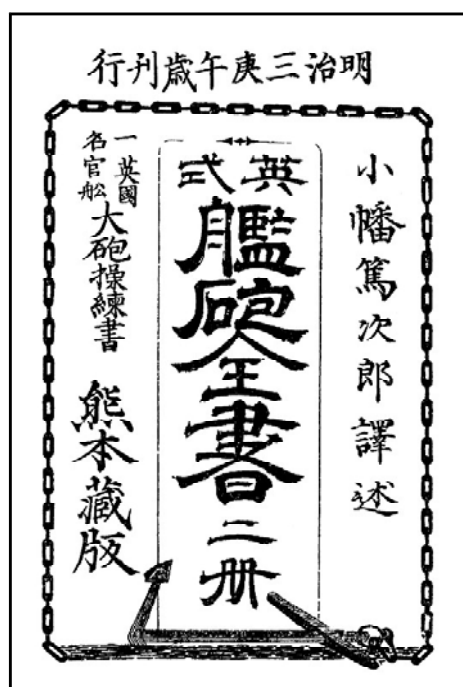 明治三庚午歳刊行
小幡篤次郎譯述
英式
艦砲全書
二册
一名
英國官舩
大砲操練書
熊本藏版